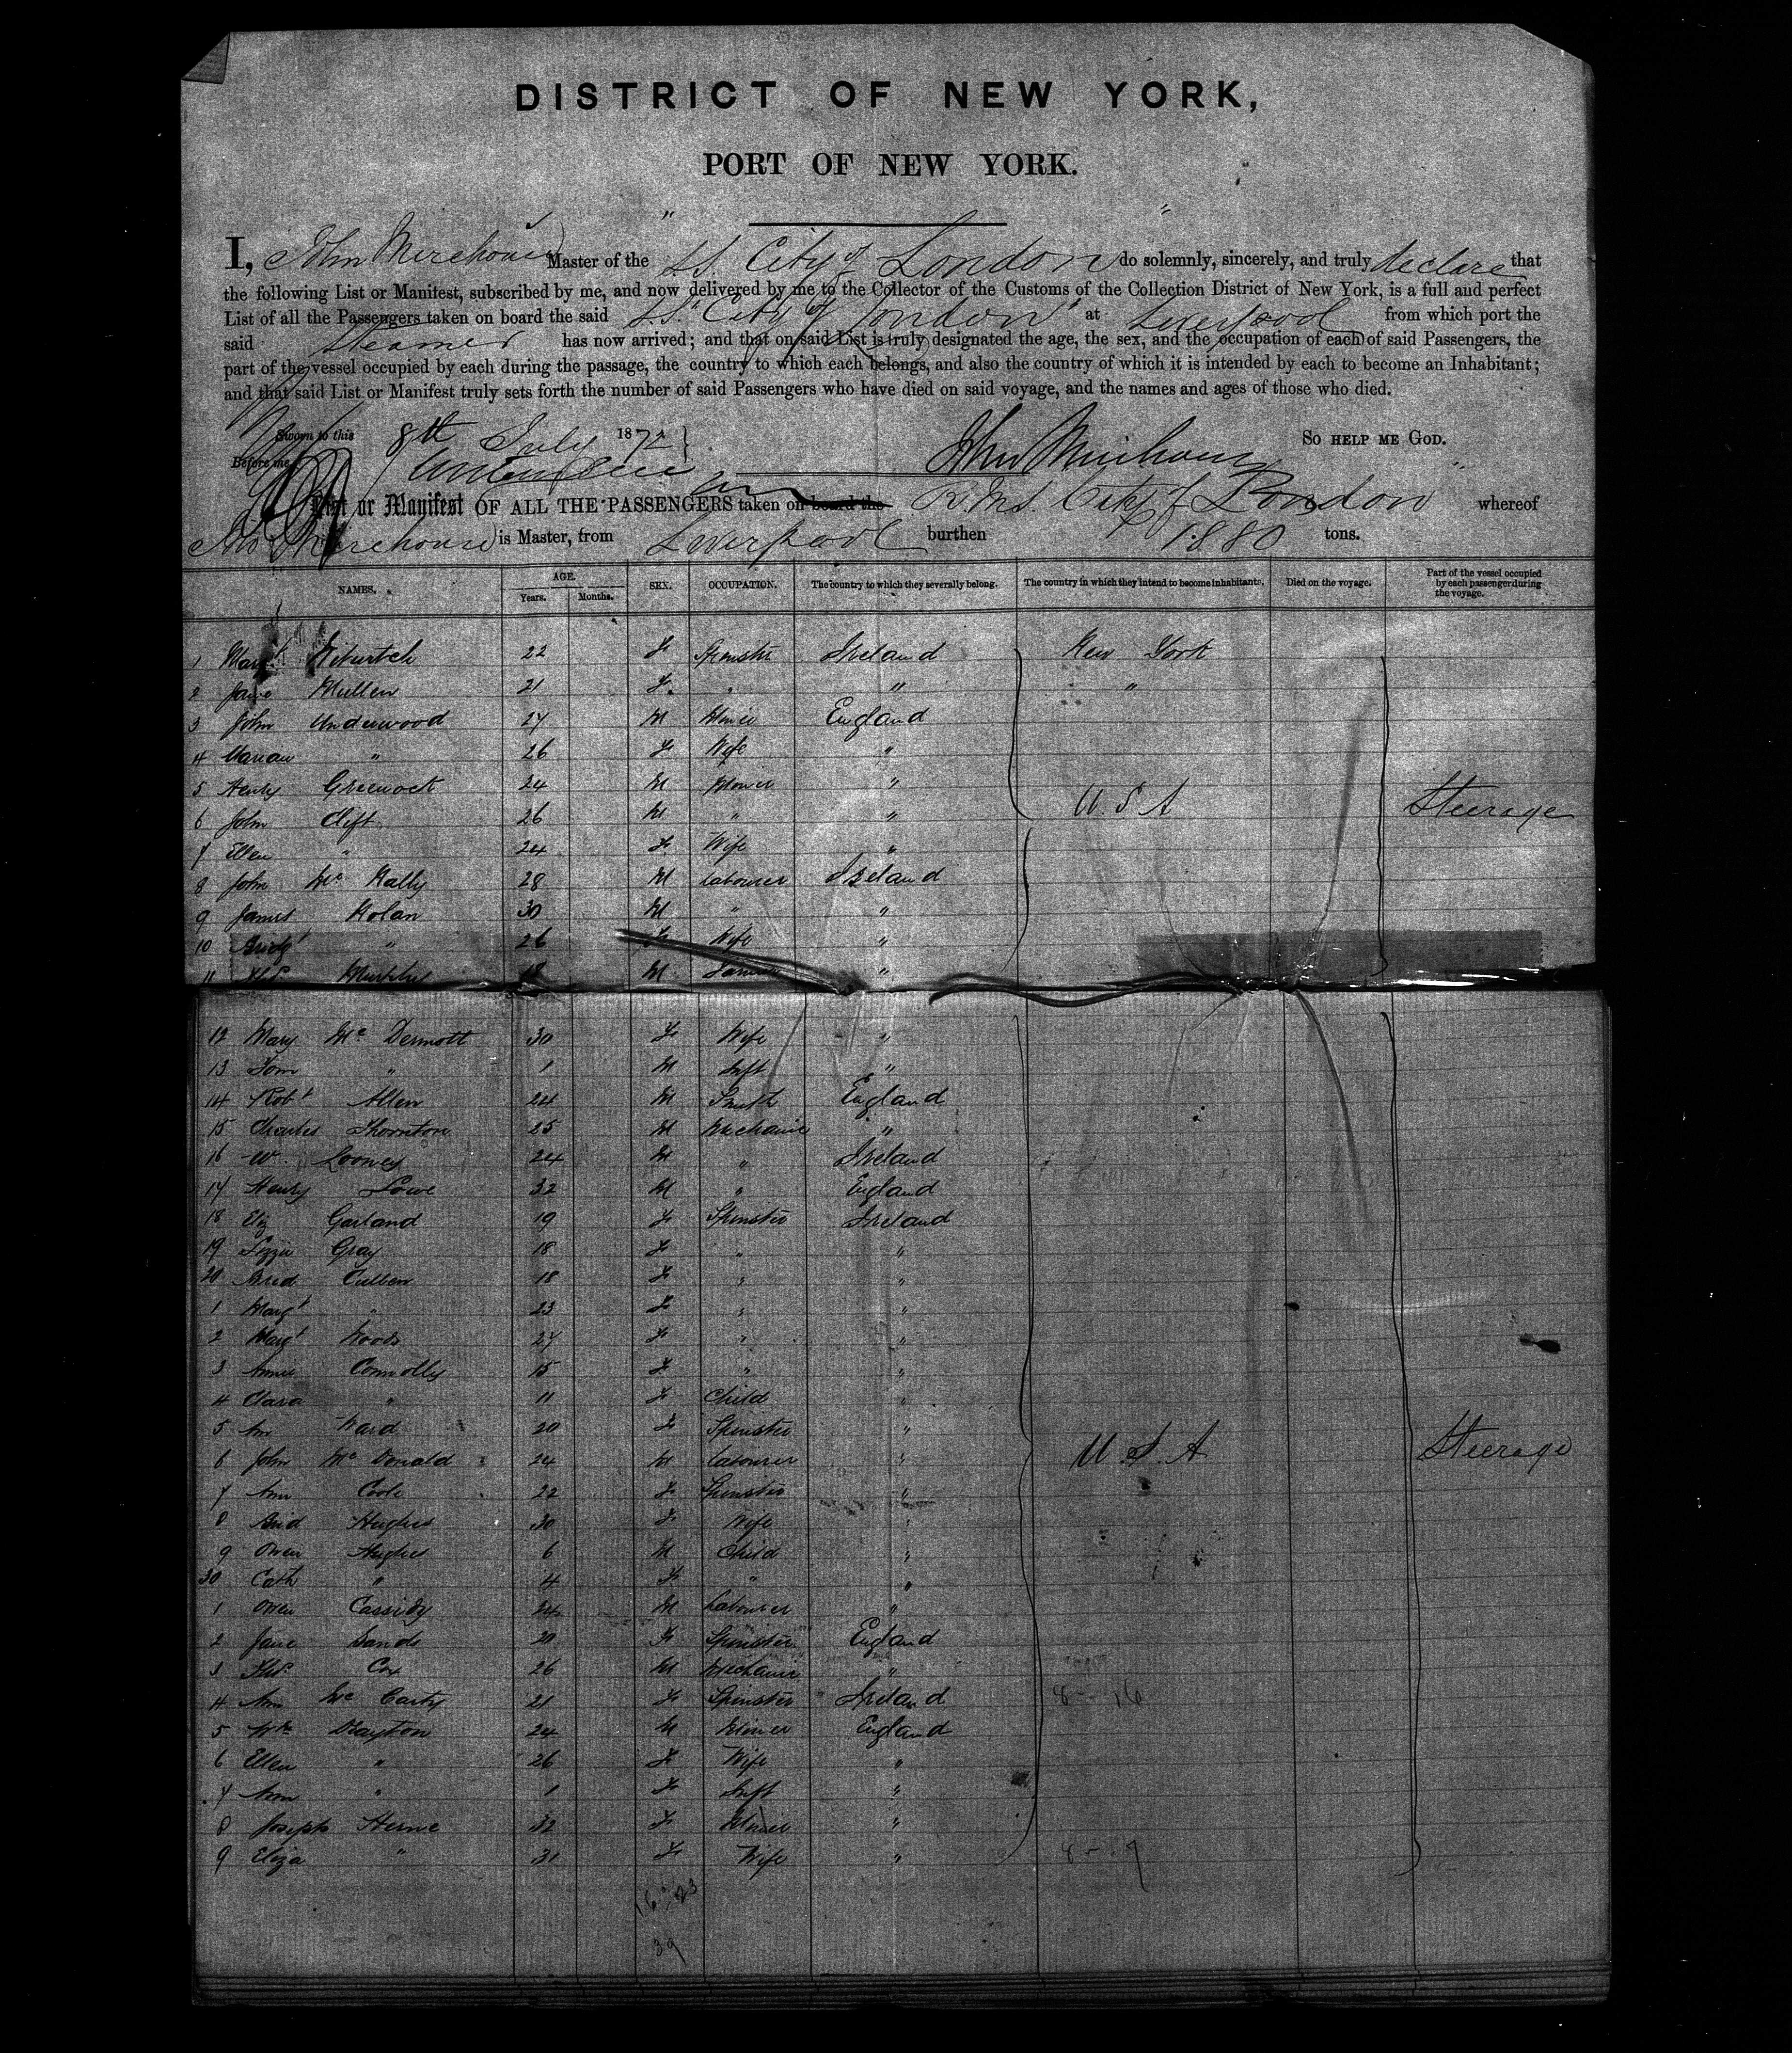 DISTRICT OF NEW YORK,
PORT OF NEW YORK.
I, John Mirehouse Master of the S.S. City of London do solemnly, sincerely, and truly declare that
the following List or Manifest, subscribed by me, and now delivered by me to the Collector of the Customs of the Collection District of New York, is a full and perfect
List of all the Passengers taken on board the said S.S. "City of London" at Liverpool from which port the
said Steamer has now arrived; and that on said List is truly designated the age, the sex, and the occupation of each of said Passengers, the
part of the vessel occupied by each during the passage, the country to which each belongs, and also the country of which it is intended by each to become an Inhabitant;
and that said List or Manifest truly sets forth the number of said Passengers who have died on said voyage, and the names and ages of those who died.
So help me God.
Sworn to this 8th July 1872
Before me John Mirehouse
List or Manifest OF ALL THE PASSENGERS taken on board the R.M.S. City of London whereof
Mirehouse is Master, from Liverpool burthen 1880 tons.
NAMES. AGE. Years. Months. SEX. OCCUPATION. The country to which they severally belong. The country in which they intend to become inhabitants. Died on the voyage. Part of the vessel occupied by each passenger during the voyage.
1 Margt 22 F Spinster Ireland New York
2 Jane Mullen 21 F " " "
3 John Underwood 27 M Miner England
4 Marian " 26 F Wife "
5 Henry Greenock 24 M Miner "
6 John Clift 26 M " " U.S.A Steerage
7 Ellen " 24 F Wife "
8 John Mc Nally 28 M Labourer Ireland
9 James Nolan 30 M " "
10 Bridgt " 26 F Wife "
11 Thos Murphy 18 M "
12 Mary Mc Dermott 30 F Wife "
13 Tom " 1 M Inft "
14 Robt Allen 24 M Smith England
15 Charles Thornton 25 M Mechanic "
16 W. Looney 24 M " Ireland
17 Henry Lowe 32 M " England
18 Eliz Garland 19 F Spinster Ireland
19 Lizzie Gray 18 F " "
20 Brid Cullen 18 F " "
1 Margt " 23 F " "
2 Margt Woods 27 F " "
3 Annie Connolly 15 F " "
4 Clara " 11 F Child "
5 Ann Ward 20 F Spinster "
6 John Mc Donald 24 M Labourer " U.S.A Steerage
7 Ann Cook 22 F Spinster "
8 Brid Hughes 30 F Wife "
9 Owen Hughes 6 M Child "
30 Cath " 4 F " "
1 Owen Cassidy 24 M Labourer "
2 Jane Sands 20 F Spinster England
3 Thos Cox 26 M Mechanic "
4 Ann Mc Carty 21 F Spinster Ireland 8 - 16
5 Wm Drayton 24 M Miner England
6 Ellen " 26 F Wife "
7 Ann " 1 F Inft "
8 Joseph Herne 32 F Miner "
9 Eliza " 31 F Wife " 8 - 9
16 23
39